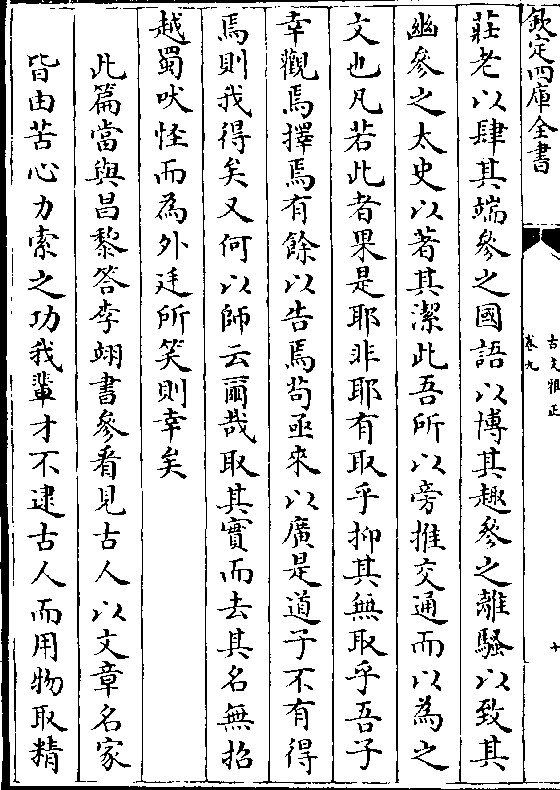 欽定四庫全書
古文雅正
卷九
十
莊老以肆其端參之國語以博其趣參之離騷以致其
幽參之太史以著其潔此吾所以旁推交通而以為之
文也凡若此者果是耶非耶有取乎抑其無取乎吾子
幸觀焉擇焉有餘以告焉苟亟來以廣是道子不有得
焉則我得矣又何以師云爾哉取其實而去其名無招
越蜀吠怪而為外廷所笑則幸矣
此篇當與昌黎答李翊書參看見古人以文章名家
皆由苦心力索之功我輩才不逮古人而用物取精